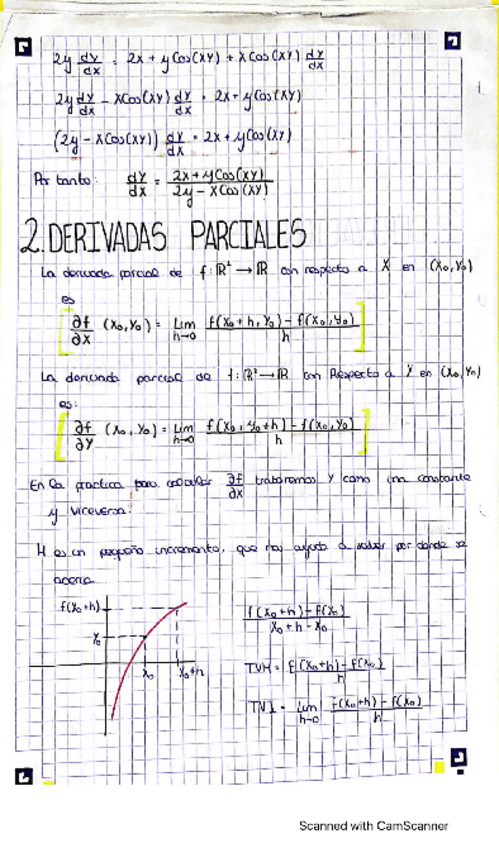 2y dy/dx = 2x + y Cos(XY) + X Cos(XY) dy/dx
2y dy/dx - X Cos(XY) dy/dx = 2x + y Cos(XY)
(2y - X Cos(XY)) dy/dx = 2x + y Cos(XY)
Por tanto: dy/dx = 2x + y Cos(XY) / 2y - X Cos(XY)
2. DERIVADAS PARCIALES
La derivada parcial de f: ℝ² → ℝ con respecto a X en (X₀, Y₀)
es
∂f/∂X (X₀, Y₀) = Lim h→0 f(X₀ + h, Y₀) - f(X₀, Y₀) / h
La derivada parcial de f: ℝ² → ℝ con Respecto a Y en (X₀, Y₀)
es:
∂f/∂Y (X₀, Y₀) = Lim h→0 f(X₀, Y₀ + h) - f(X₀, Y₀) / h
En la practica para calcular ∂f/∂X trataremos Y como una constante
y viceversa.
H es un pequeño incremento, que nos ayuda a saber por donde se
acerca
f(X₀+h)
Y₀
X₀
X₀+h
f(X₀+h) - f(X₀) / X₀ + h - X₀
TVM = f(X₀+h) - f(X₀) / h
TVI = Lim h→0 f(X₀+h) - f(X₀) / h
Scanned with CamScanner